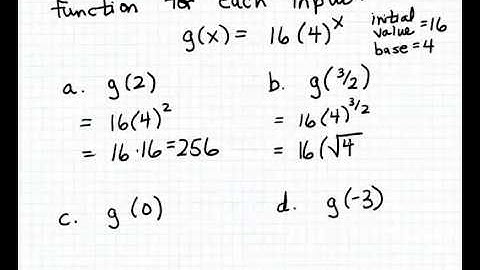 function for each input.
g(x) = 16(4)^x
initial value = 16
base = 4
a. g(2)
= 16(4)^2
= 16·16=256
b. g(3/2)
= 16(4)^3/2
= 16(√4
c. g(0)
d. g(-3)